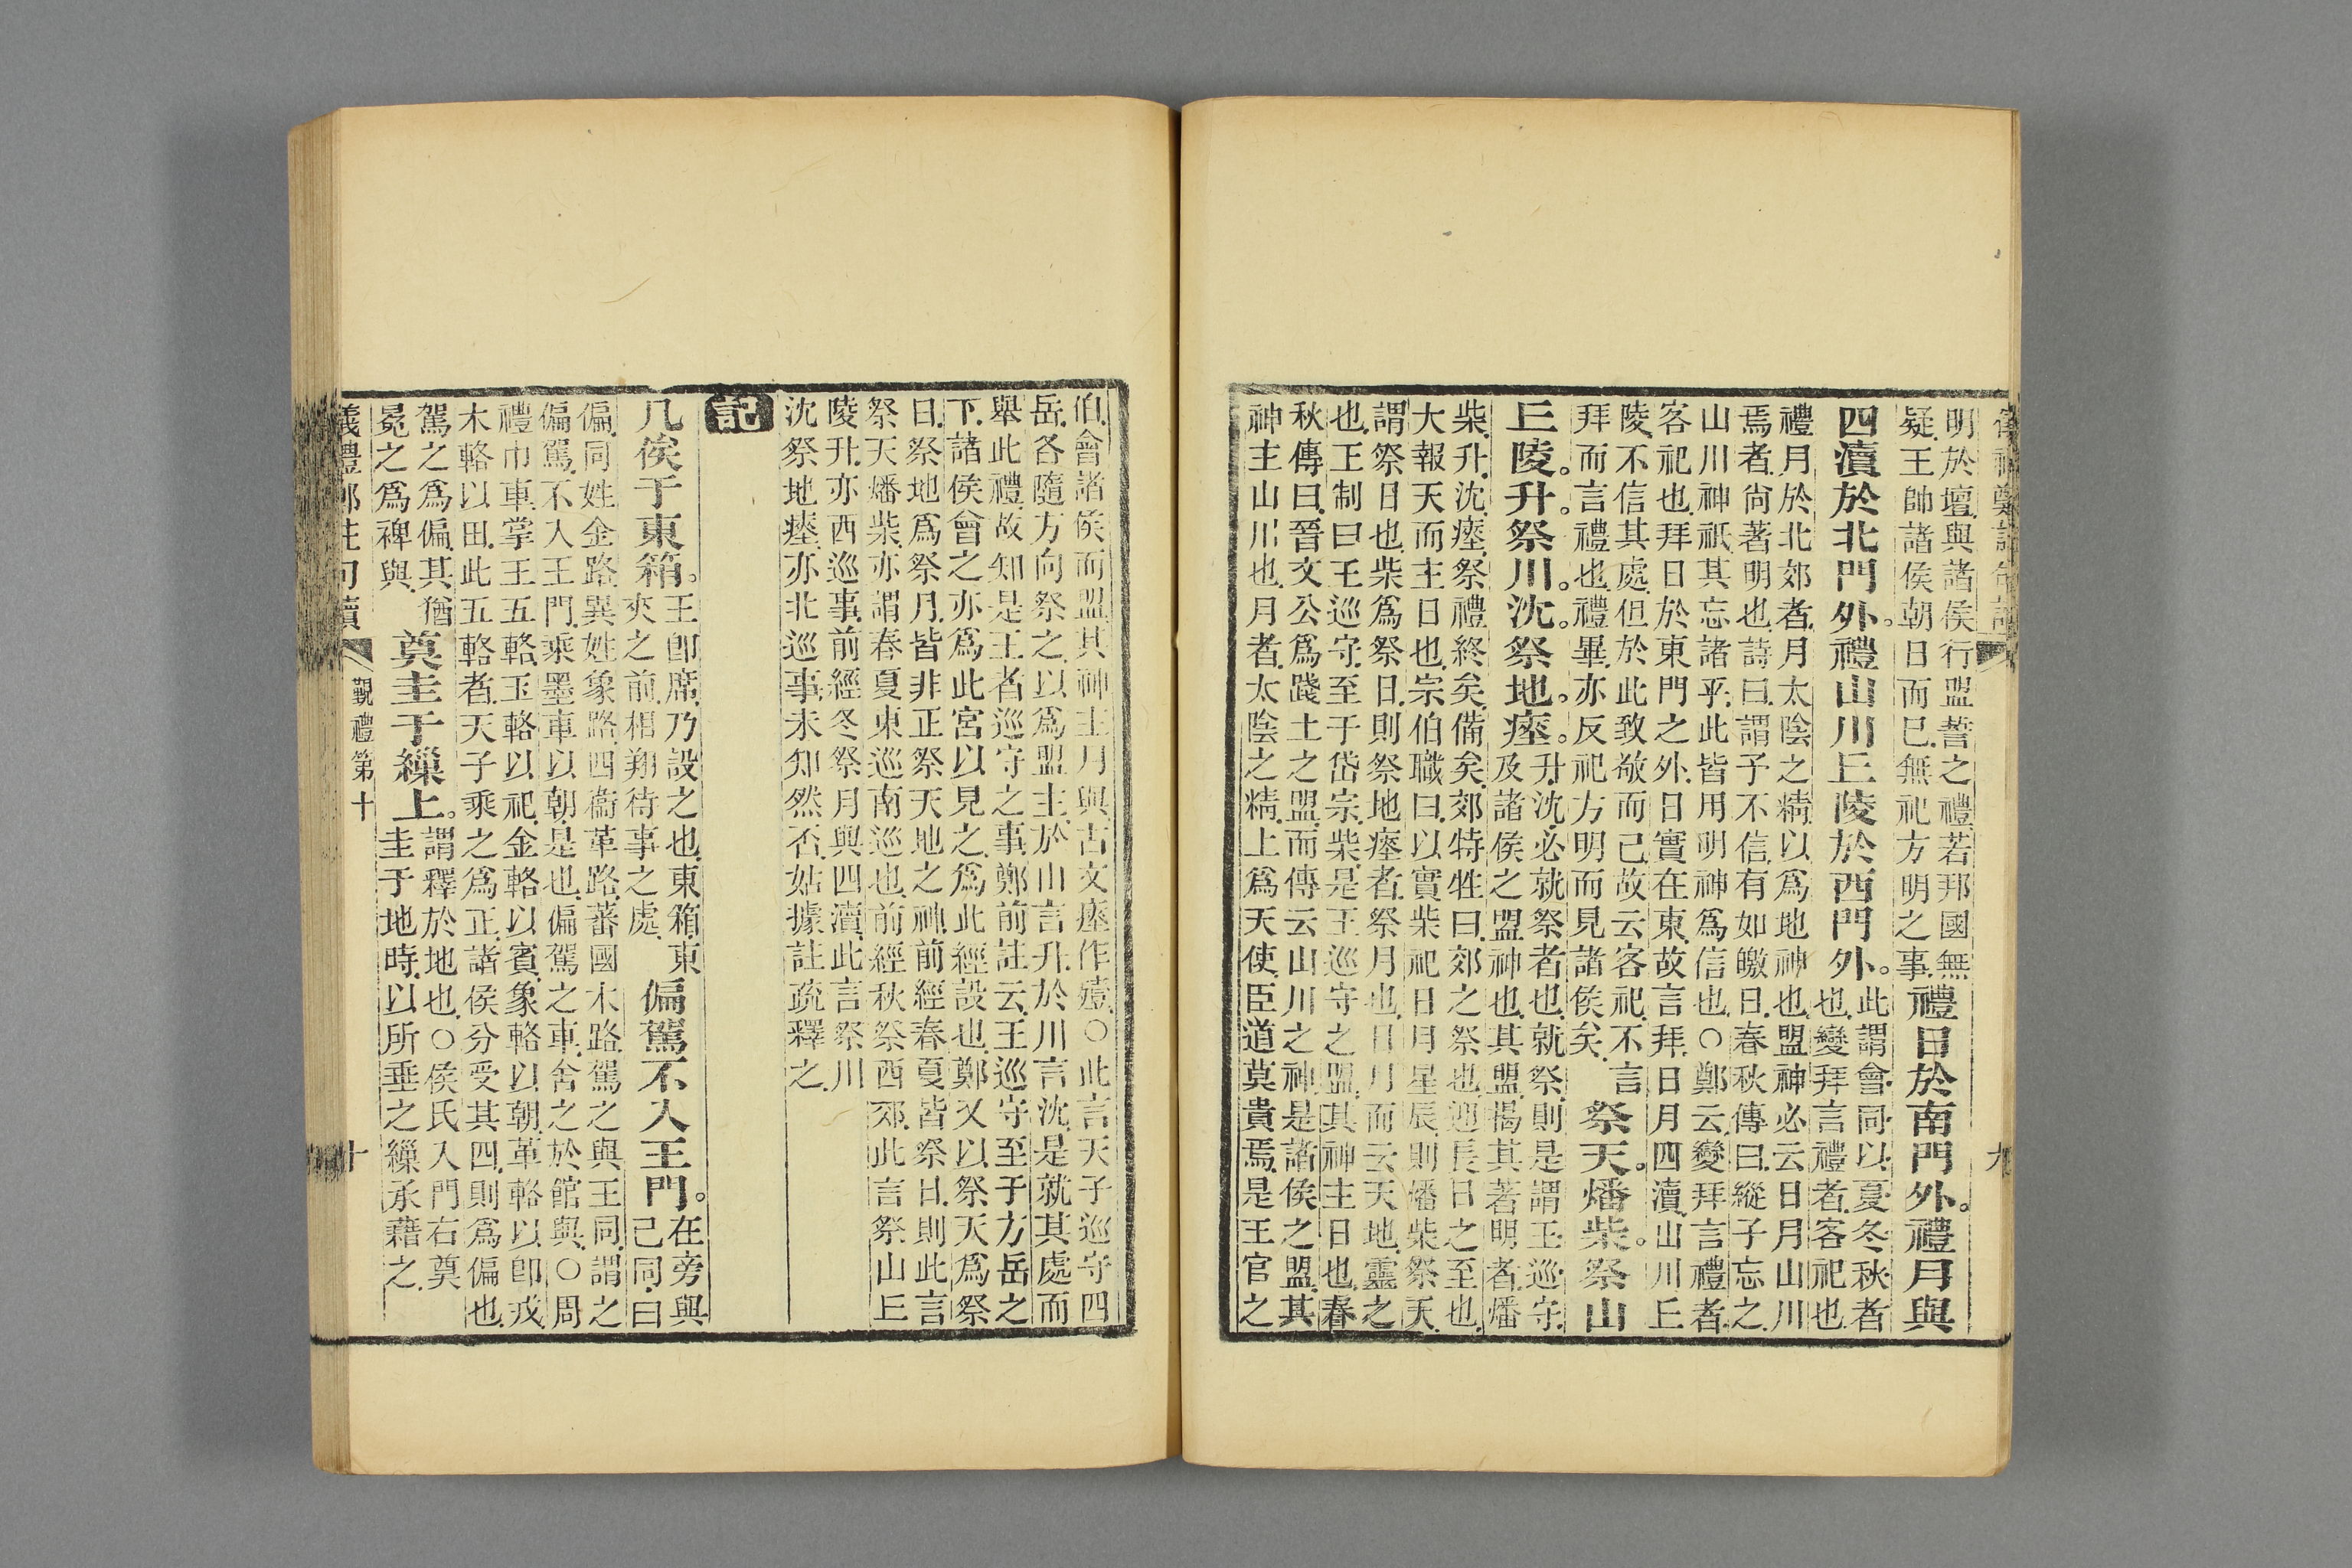 九
明於壇與諸侯行盟誓之禮若邦國無
疑王帥諸侯朝日而已無祀方明之事
禮日於南門外。禮月與
四瀆於北門外。禮山川丘陵於西門外。
此謂會同以夏冬秋者
也變拜言禮者客祀也
禮月於北郊者月太陰之精以爲地神也盟神必云日月山川
焉者尚著明也詩曰謂予不信有如皦日春秋傳曰縱子忘之
山川神祇其忘諸乎此皆用明神爲信也○鄭云變拜言禮者
客祀也拜日於東門之外日實在東故言拜日月四瀆山川丘
陵不信其處但於此致敬而已故云客祀不言
拜而言禮也禮畢亦反祀方明而見諸侯矣
祭天。燔柴。祭山
丘陵。升。祭川。沈。祭地。瘞。
升沈必就祭者也就祭則是謂王巡守
及諸侯之盟神也其盟揭其著明者燔
柴升沈瘞祭禮終矣備矣郊特牲曰郊之祭也迎長日之至也
大報天而主日也宗伯職曰以實柴祀日月星辰則燔柴祭天
謂祭日也柴爲祭日則祭地瘞者祭月也日月而云天地靈之
也王制曰王巡守至于岱宗柴是王巡守之盟其神主日也春
秋傳曰晉文公爲踐土之盟而傳云山川之神是諸侯之盟其
神主山川也月者太陰之精上爲天使臣道莫貴焉是王官之
伯會諸侯而盟其神主月與古文瘞作殪○此言天子巡守四
岳各隨方向祭之以爲盟主於山言升於川言沈是就其處而
舉此禮故知是王者巡守之事鄭前註云王巡守至于方岳之
下諸侯會之亦爲此宮以見之爲此經設也鄭又以祭天爲祭
日祭地爲祭月皆非正祭天地之神前經春夏皆祭日則此言
祭天燔柴亦謂春夏東巡南巡也前經秋祭西郊此言祭山丘
陵升亦西巡事前經冬祭月與四瀆此言祭川
沈祭地瘞亦北巡事未知然否姑據註疏釋之
記
几俟于東箱。
王卽席乃設之也東箱東
夾之前相翔待事之處
偏駕不入王門。
在旁與
己同曰
偏同姓金路異姓象路四衞革路蕃國木路駕之與王同謂之
偏駕不入王門乘墨車以朝是也偏駕之車舍之於館與○周
禮巾車掌王五輅玉輅以祀金輅以賓象輅以朝革輅以卽戎
木輅以田此五輅者天子乘之爲正諸侯分受其四則爲偏也
駕之爲偏其猶
冕之爲裨與
奠圭于繅上。
謂釋於地也○侯氏入門右奠
圭于地時以所垂之繅承藉之
儀禮鄭註句讀
覲禮第十
十